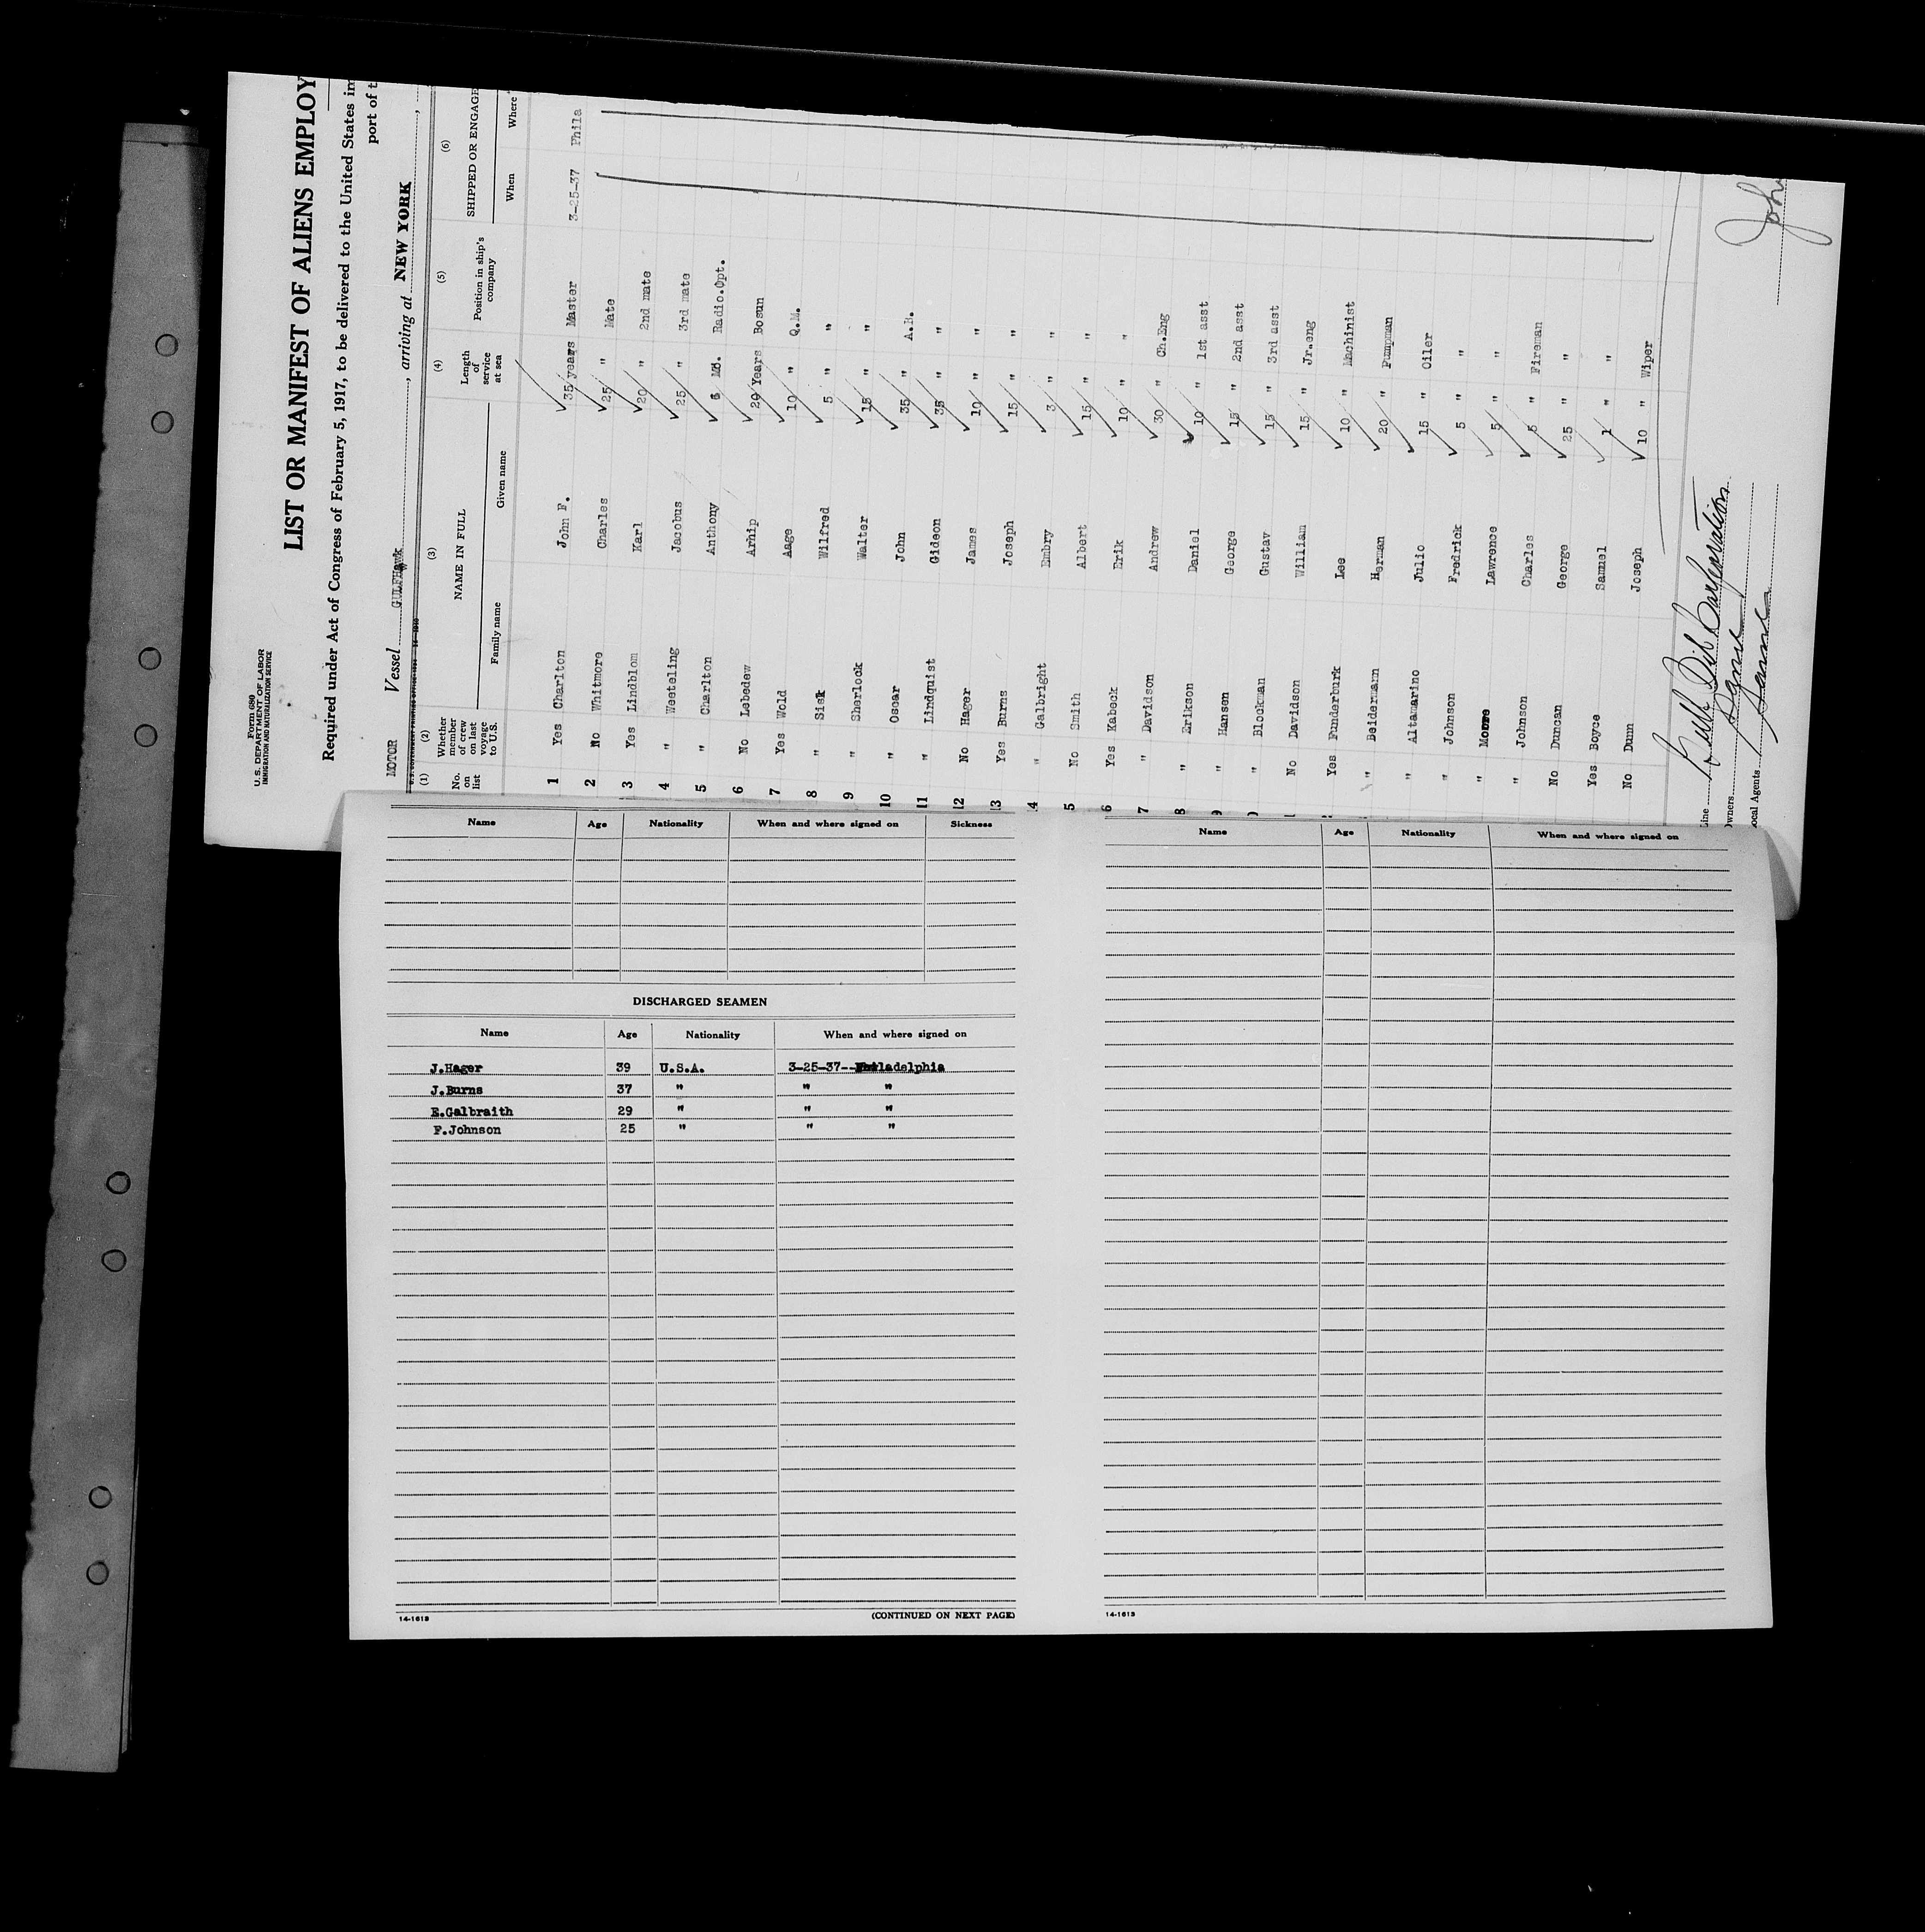 Form 680
U.S. DEPARTMENT OF LABOR
IMMIGRATION AND NATURALIZATION SERVICE
LIST OR MANIFEST OF ALIENS EMPLOY
Required under Act of Congress of February 5, 1917, to be delivered to the United States im
port of t
MOTOR Vessel GULFHAWK, arriving at NEW YORK,
(1) (2) (3) (4) (5) (6)
No. on list Whether member of crew on last voyage to U.S. NAME IN FULL Length of service at sea Position in ship's company SHIPPED OR ENGAGE
Family name Given name When Where
1 Yes Charlton John F. 35 years Master 3-25-37 Phila
2 No Whitmore Charles 25 " Mate
3 Yes Lindblom Karl 20 " 2nd mate
4 " Weeteling Jacobus 25 " 3rd mate
5 " Charlton Anthony 6 Mo. Radio.Opt.
6 No Lebedew Arhip 20 Years Bosun
7 Yes Wold Aage 10 " Q.M.
8 " Sisk Wilfred 5 " "
9 " Sherlock Walter 15 " "
10 " Oscar John 35 " A.B.
11 " Lindquist Gideon 35 " "
12 No Hager James 10 " "
13 Yes Burns Joseph 15 " "
14 " Galbright Embry 3 " "
5 No Smith Albert 15 " "
6 Yes Kabeck Erik 10 " "
7 " Davidson Andrew 30 " Ch.Eng
8 " Erikson Daniel 10 " 1st asst
9 " Hansen George 15 " 2nd asst
" Blockman Gustav 15 " 3rd asst
No Davidson William 15 " Jr.eng
Yes Funderburk Lee 10 " Machinist
" Beidermann Herman 20 " Pumpman
" Altamarino Julio 15 " Oiler
" Johnson Fredrick 5 " "
" Moore Lawrence 5 " "
" Johnson Charles 5 " Fireman
No Duncan George 25 " "
Yes Boyce Samuel 1 " "
No Dunn Joseph 10 " Wiper
Line Gulf Oil Corporation
Owners Same
Local Agents Same
Joh
Name Age Nationality When and where signed on Sickness
DISCHARGED SEAMEN
Name Age Nationality When and where signed on
J.Hager 39 U.S.A. 3-25-37--Philadelphia
J.Burns 37 " " "
E.Galbraith 29 " " "
F.Johnson 25 " " "
14-1613 (CONTINUED ON NEXT PAGE)
Name Age Nationality When and where signed on
14-1613